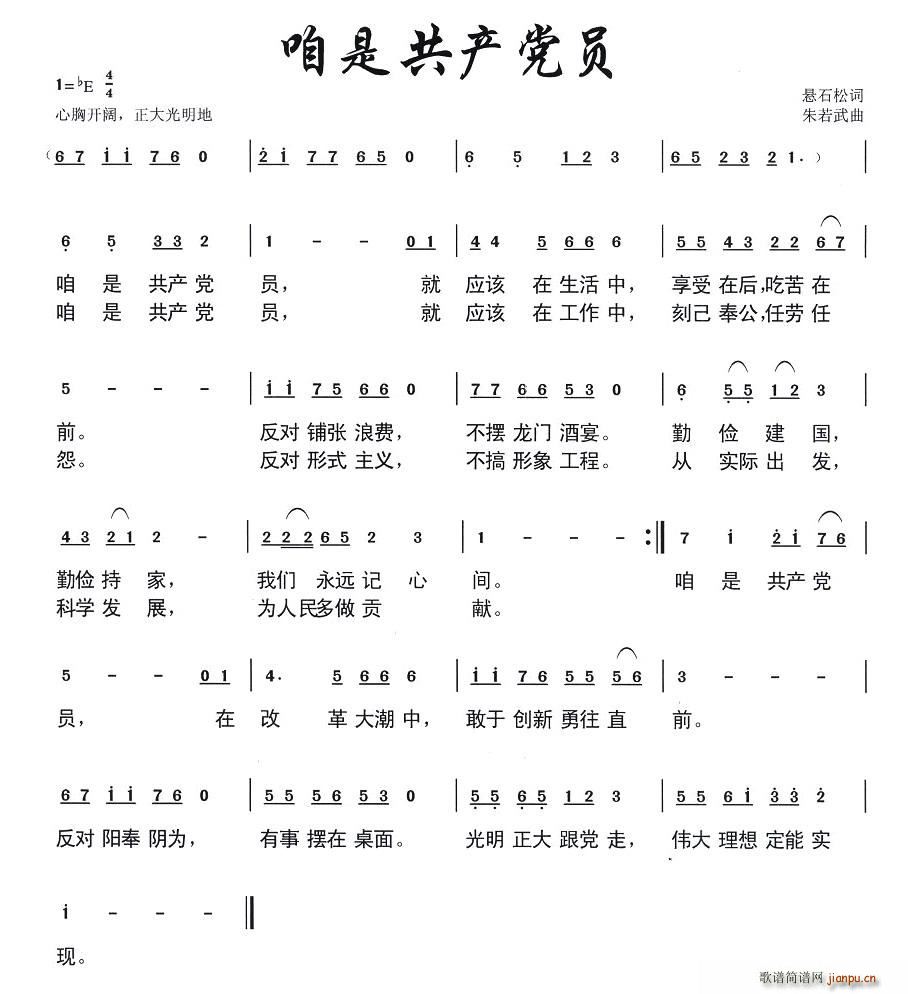 咱是共产党员
1=♭E 4/4
心胸开阔，正大光明地
悬石松词
朱若武曲
（6 7 i i 7 6 0 | 2 i 7 7 6 5 0 | 6 5 1 2 3 | 6 5 2 3 2 1· ）|
6 5 3 3 2 | 1 - - 0 1 | 4 4 5 6 6 6 | 5 5 4 3 2 2 6 7 |
咱 是 共产 党 员， 就 应该 在 生活 中， 享受 在后，吃苦 在
咱 是 共产 党 员， 就 应该 在 工作 中， 刻己 奉公，任劳 任
5 - - - | i i 7 5 6 6 0 | 7 7 6 6 5 3 0 | 6 5 5 1 2 3 |
前。 反对 铺张 浪费， 不摆 龙门 酒宴。 勤 俭 建 国，
怨。 反对 形式 主义， 不搞 形象 工程。 从 实际 出 发，
4 3 2 1 2 - | 2 2 2 6 5 2 3 | 1 - - - :‖ 7 i 2 i 7 6 |
勤俭 持 家， 我们 永远 记 心 间。 咱 是 共产 党
科学 发 展， 为人民多做 贡 献。
5 - - 0 1 | 4· 5 6 6 6 | i i 7 6 5 5 5 6 | 3 - - - |
员， 在 改 革 大潮 中， 敢于 创新 勇往 直 前。
6 7 i i 7 6 0 | 5 5 5 6 5 3 0 | 5 5 6 5 1 2 3 | 5 5 6 i 3 3 2 |
反对 阳奉 阴为， 有事 摆在 桌面。 光明 正大 跟党 走， 伟大 理想 定能 实
i - - - ‖
现。
歌谱简谱网 jianpu.cn